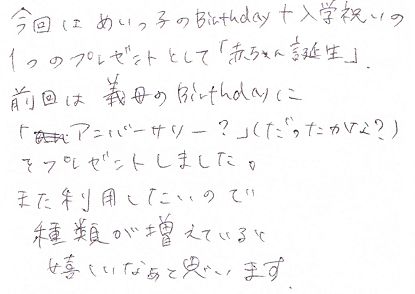 今回はめいっ子のBirthday+入学祝いの
1つのプレゼントとして「赤ちゃん誕生」.
前回は義母のBirthdayに
「アニバーサリー?」(だったかな?)
をプレゼントしました。
また利用したいので
種類が増えていると
嬉しいなぁと思います.